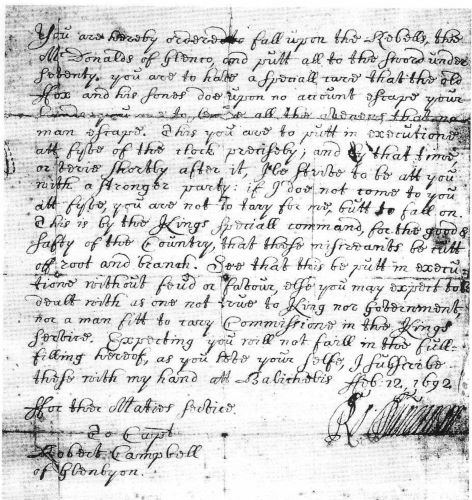 You are hereby ordered to fall upon the Rebells, the
McDonalds of Glenco, and putt all to the sword under
seventy. you are to have a speciall care that the old
ffox and his sones doe upon no account escape your
hands, you are to secure all the avenues that no
man escape. This you are to putt in executione
att fyve of the clock precisely; and by that time,
or verie shortly after it, I'le strive to be att you
with a stronger party: if I doe not come to you
att fyve, you are not to tary for me, butt to fall on.
This is by the Kings speciall command, for the good &
safty of the Country, that these miscreants be cutt
off root and branch. See that this be putt in execu-
tione without feud or favour, else you may expect to be
dealt with as one not true to King nor Government,
nor a man fitt to cary Commissione in the Kings
service. Expecting you will not faill in the full-
filling hereof, as you love your selfe, I subscribe
these with my hand att Balicholis Feb: 12, 1692
ffor ther Maties service.
To Capt
Robert Campbell
of Glenlyon.